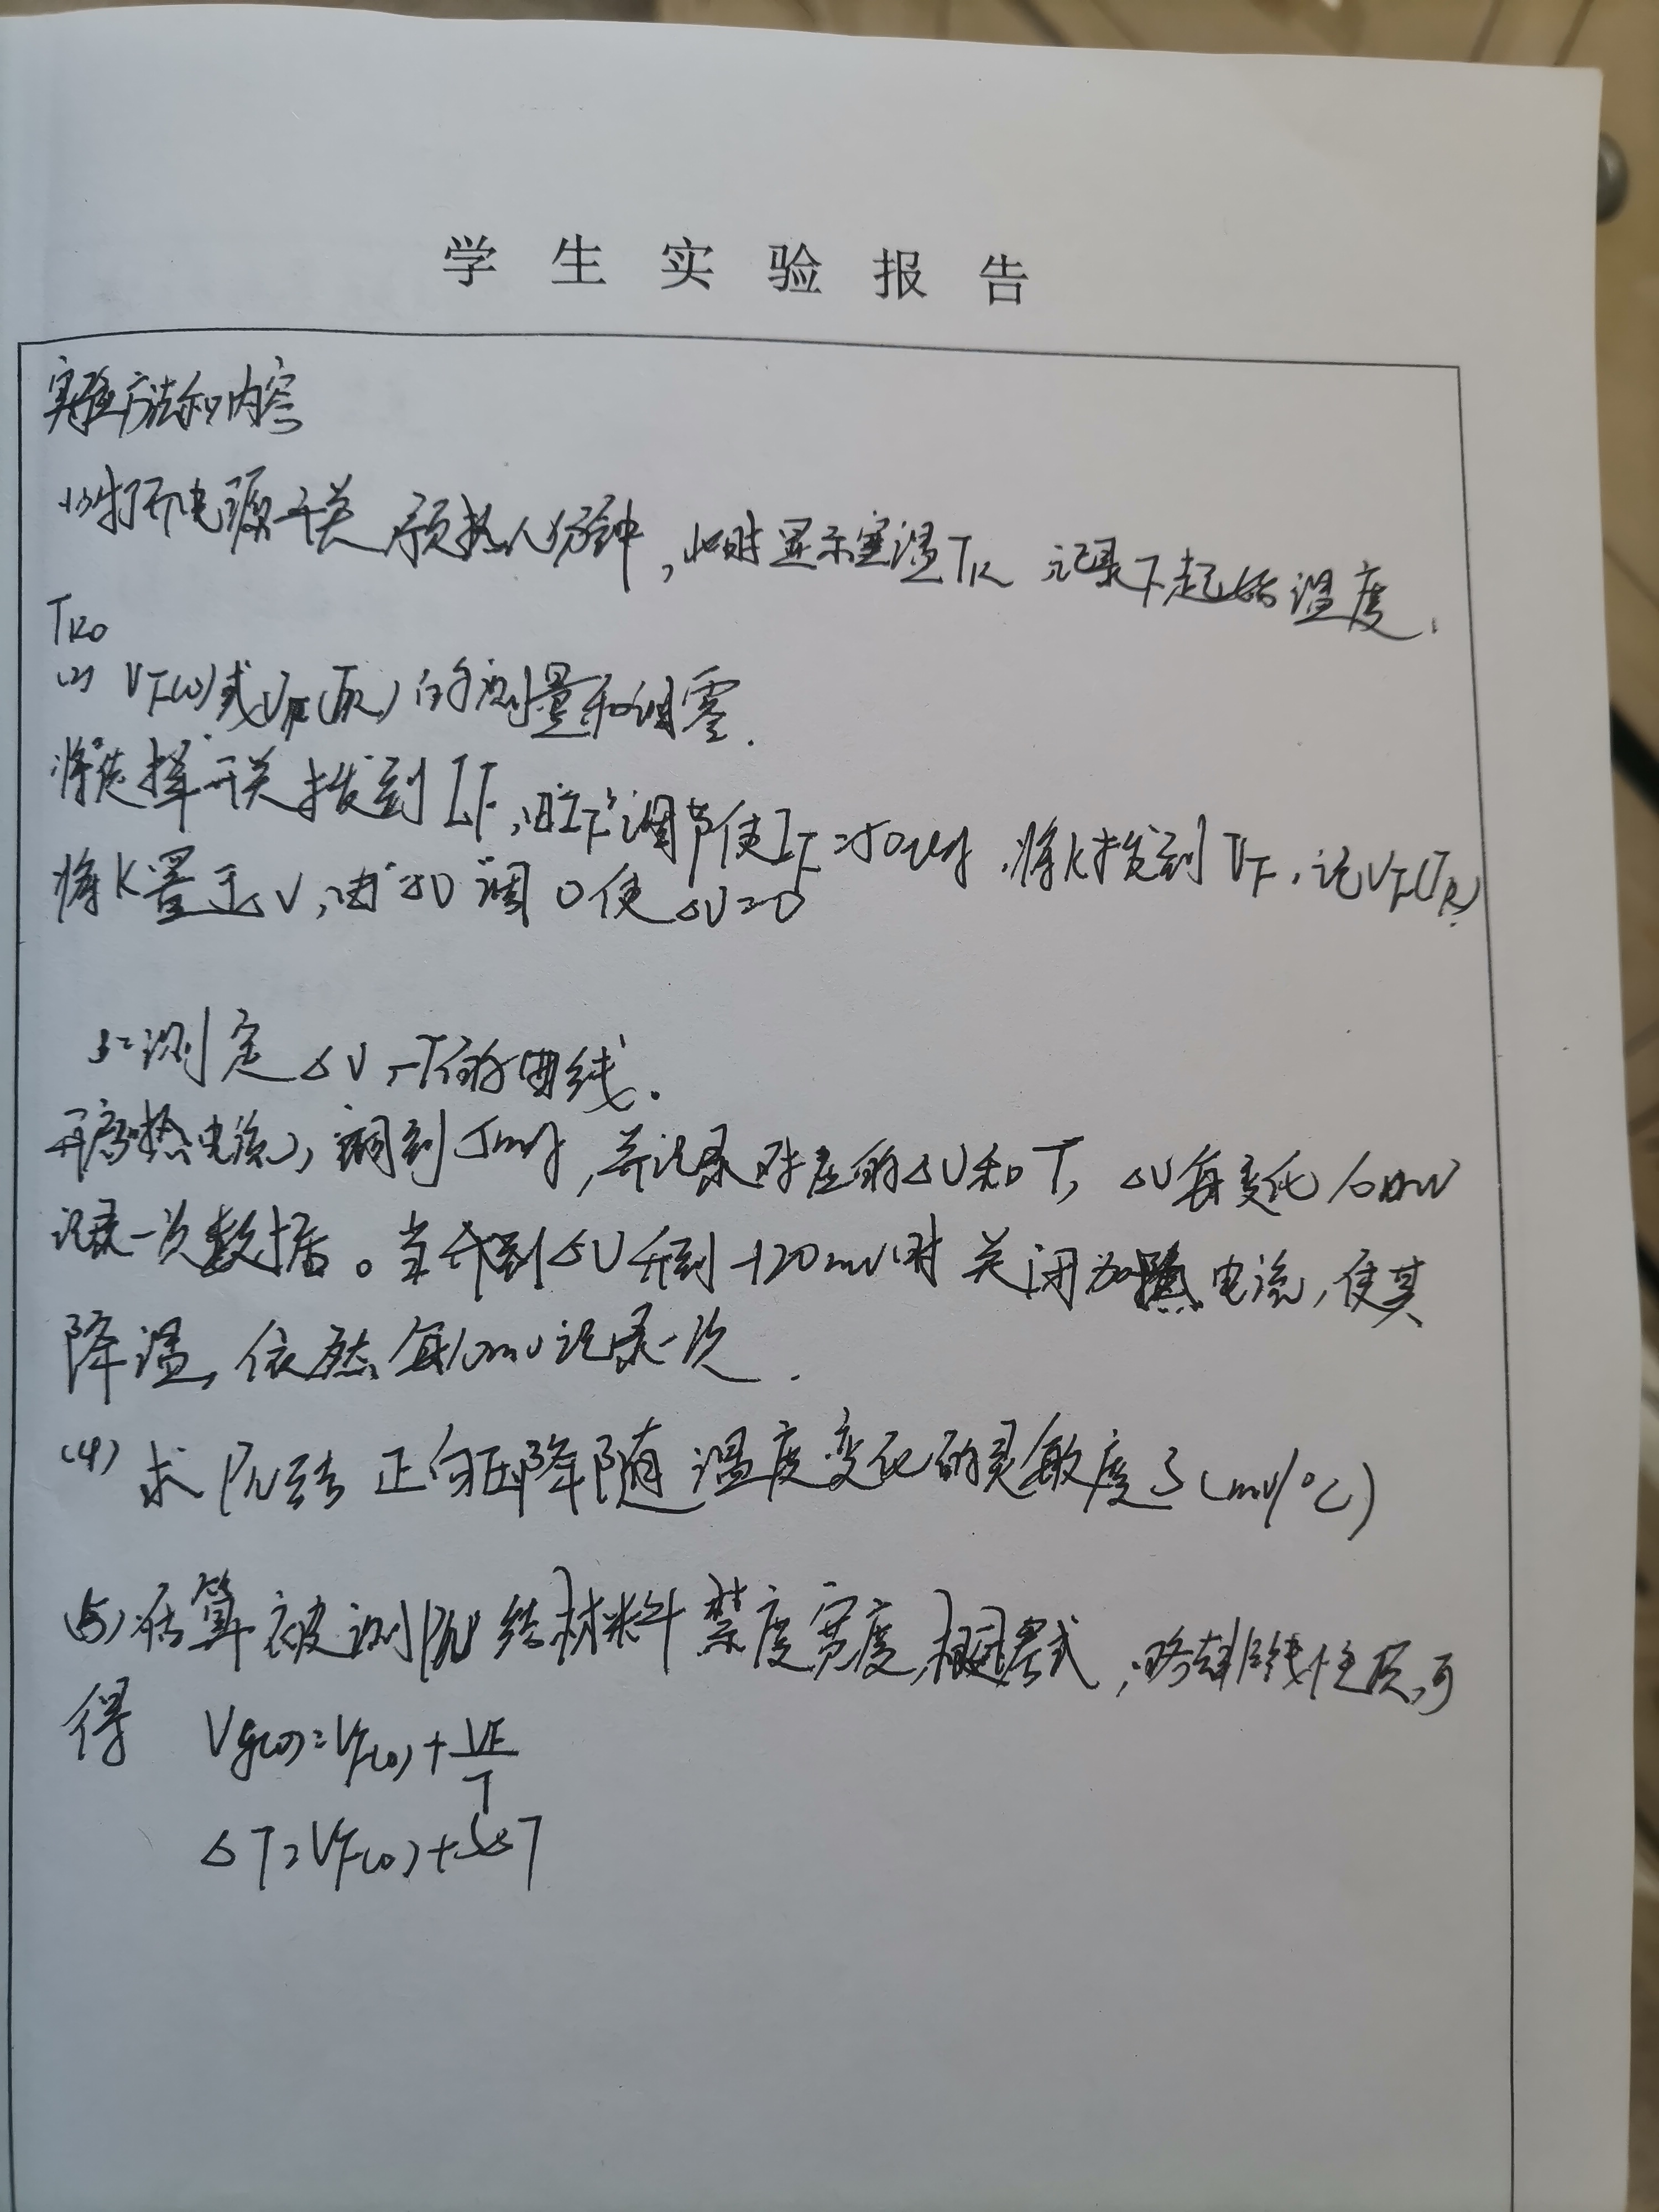 学生实验报告
实验方法和内容
(1)打开电源开关 预热几分钟，此时显示室温TR 记录下起始温度.
TR0
(2) VF(0)或VF(TR)的测量和调零.
将"选择"开关拨到IF,由"IF"调节使IF=50μA,将K拨到VF,记VF(TR)
将K置于△V,由"△V"调0使△V=0
3:测定△V-T的曲线.
开启加热电流,调到5mA,并记录对应的△V和T, △V每变化10mV
记录一次数据。当升到△V升到-120mV时关闭加热电流,使其
降温,依然每10mV记录一次.
(4) 求PN结正向压降随温度变化的灵敏度S(mV/℃)
(5)估算被测PN结材料禁度宽度,根据式,略去非线性项,可
得 Vg(0)=VF(0)+VF/T
△T=VF(0)+S△T